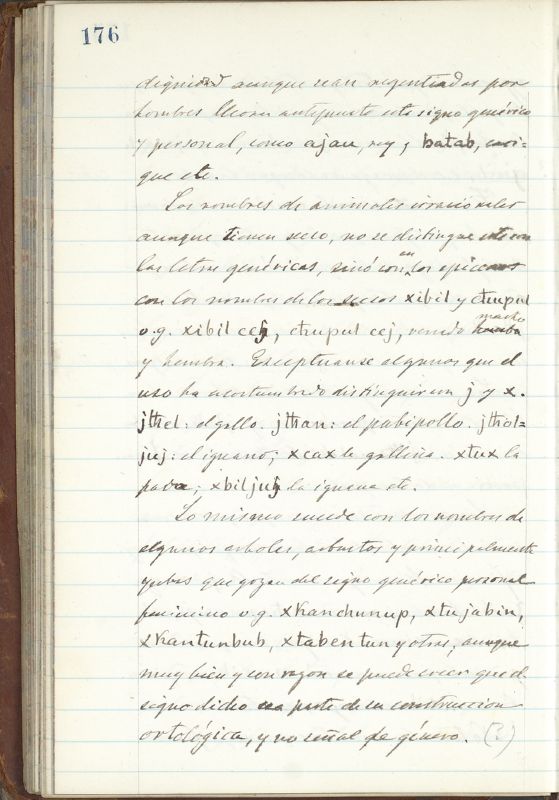 176
dignidad aunque sean regentadas por
hombres llevan antepuesto este signo genérico
y personal, como ajau, rey, batab, caci=
que etc.
Los nombres de animales irracionales
aunque tienen secso, no se distingue este con
las letras genéricas, sinó con los epicenos
con los nombres de los secsos xibil y chupul
v.g. xibil cej, chupul cej, venado macho
y hembra. Exceptuanse algunos que el
uso ha acostumbrado distinguir con j y x.
jthel: el gallo. jthan: el pabipollo. jthol=
juj: el iguano; xcax la gallina. xtux la
pava; xbiljuj la iguana etc.
Lo mismo sucede con los nombres de
algunos arboles, arbustos y principalmente
yerbas que gozan del signo genérico personal
femenino v.g. xkanchunup, xtujabin,
xkantunbub, xtabentun y otras, aunque
muy bien y con razon se puede creer que el
signo dicho sea parte de su construccion
ortológica, y no señal de género. (3)